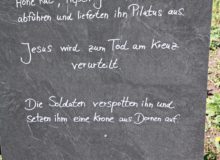 Hohe Rat,
abführen und lieferten ihn Pilatus aus.
Jesus wird zum Tod am Kreuz
verurteilt.
Die Soldaten verspotten ihn und
setzen ihm eine Krone aus Dornen auf.